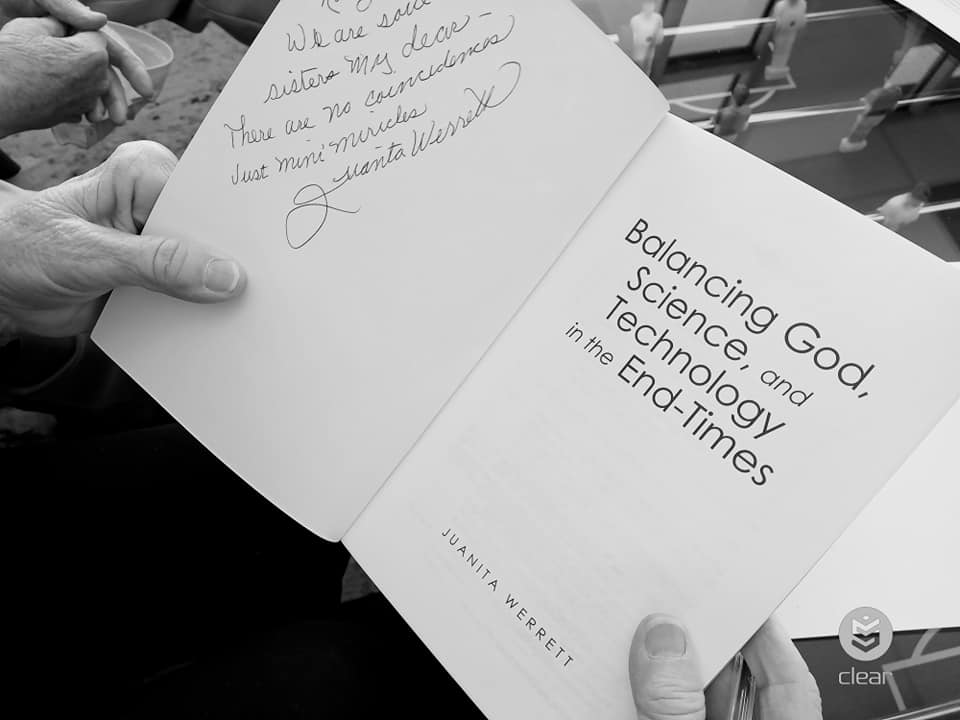 We are soul
sisters my dear –
There are no coincidences
Just mini miricles
Juanita Werrett
Balancing God,
Science, and
Technology
in the End-Times
JUANITA WERRETT
clear